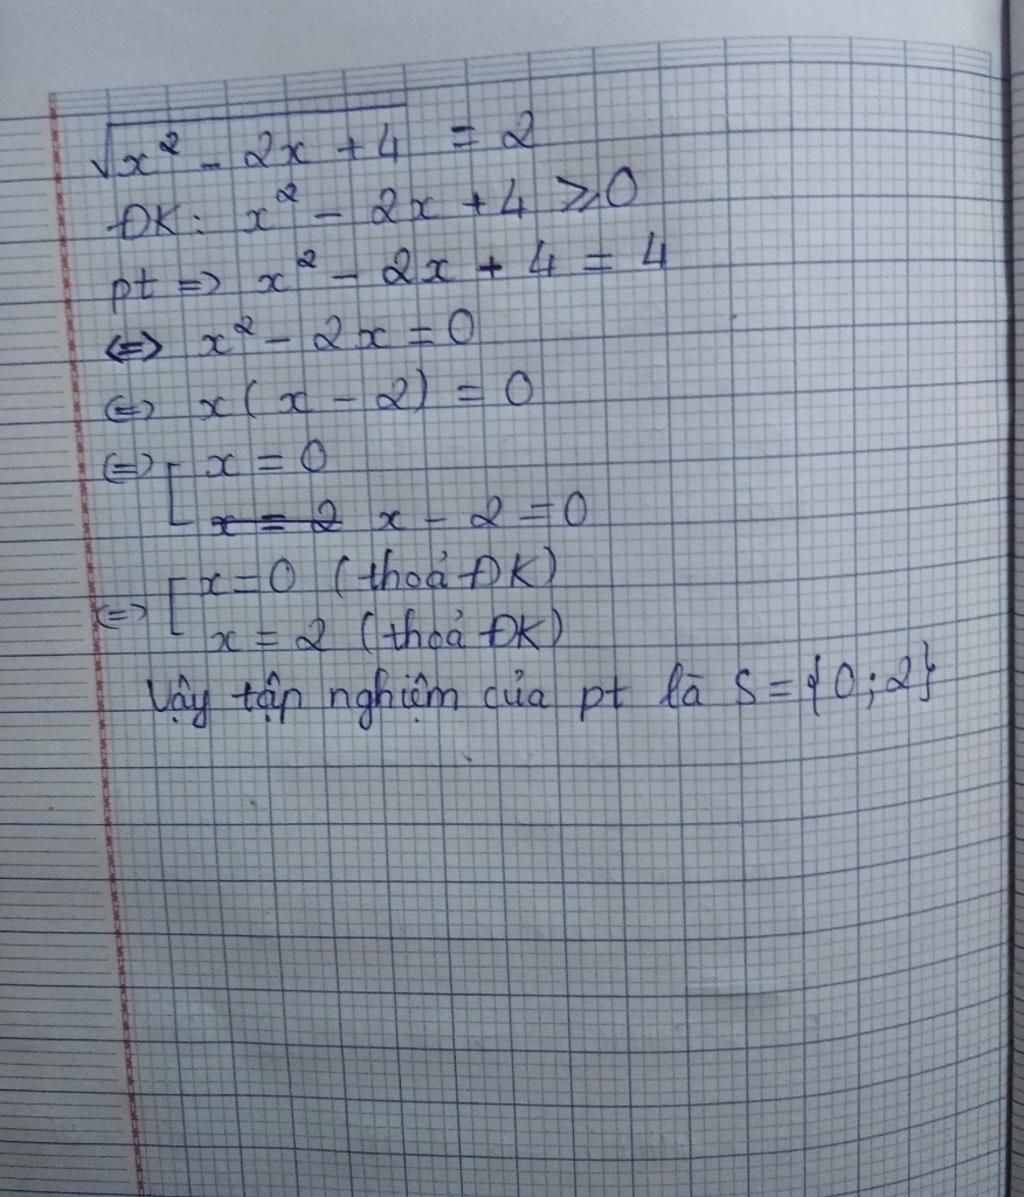 √(x² - 2x + 4) = 2
ĐK: x² - 2x + 4 ⩾ 0
pt => x² - 2x + 4 = 4
<=> x² - 2x = 0
<=> x(x - 2) = 0
<=> [ x = 0
x = 2 x - 2 = 0
<=> [ x = 0 (thoả ĐK)
x = 2 (thoả ĐK)
Vậy tập nghiệm của pt là S = {0; 2}